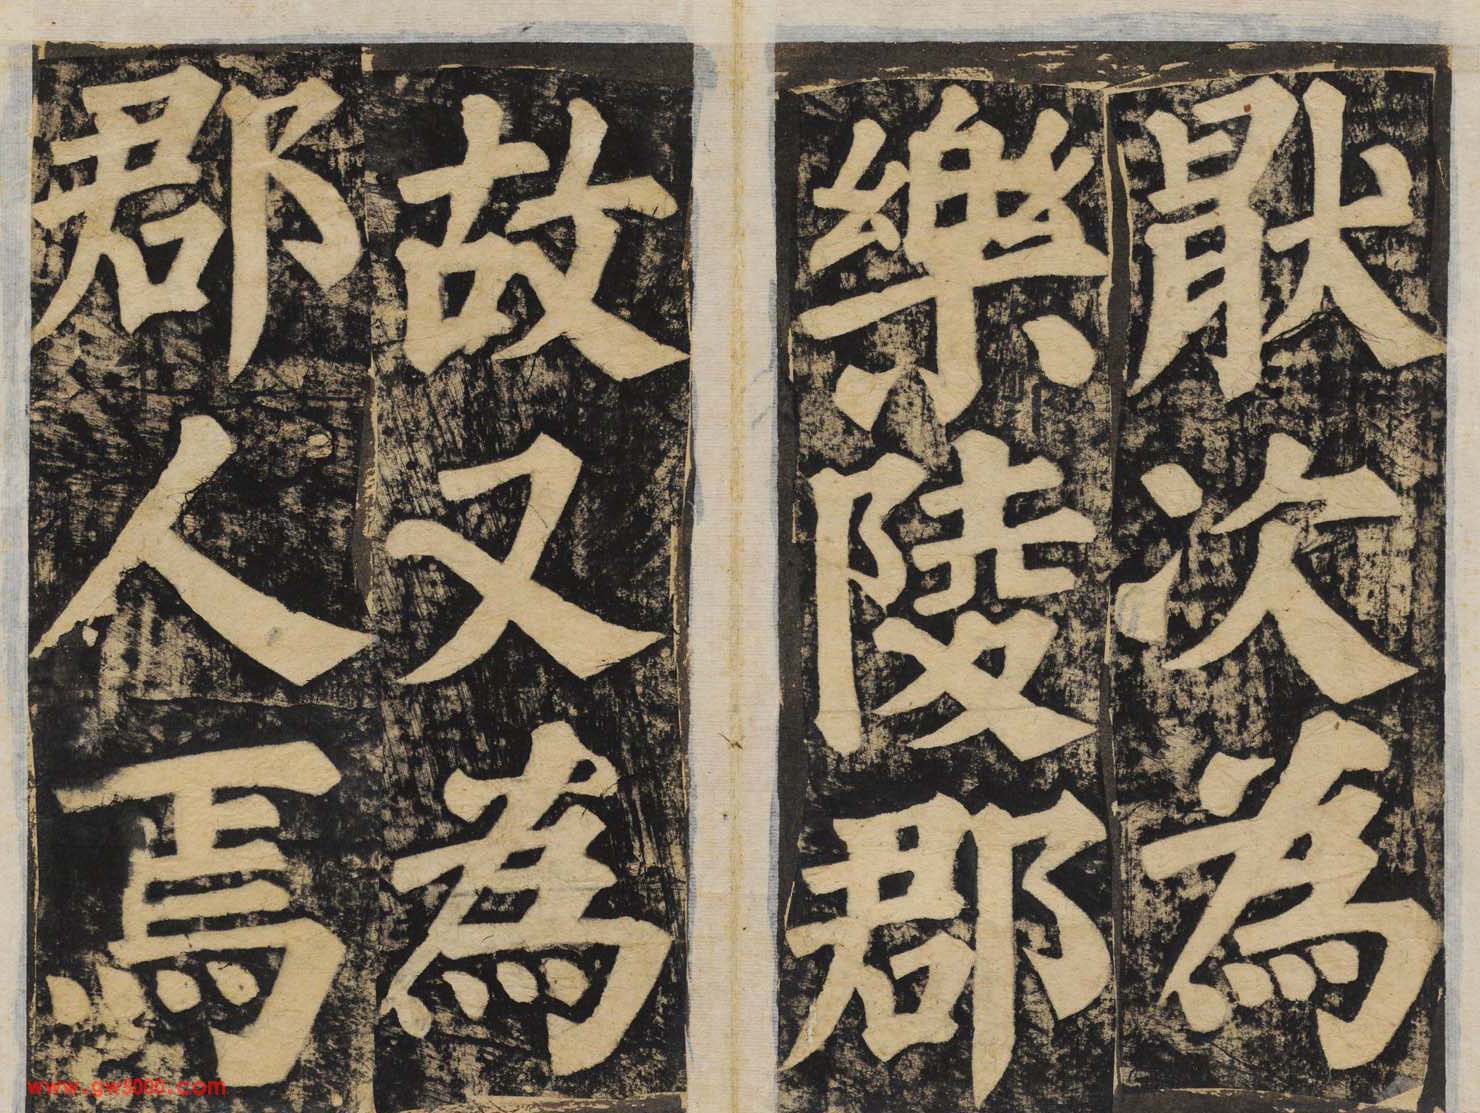 猒次為
樂陵郡
故又為
郡人焉
www.gw5000.com